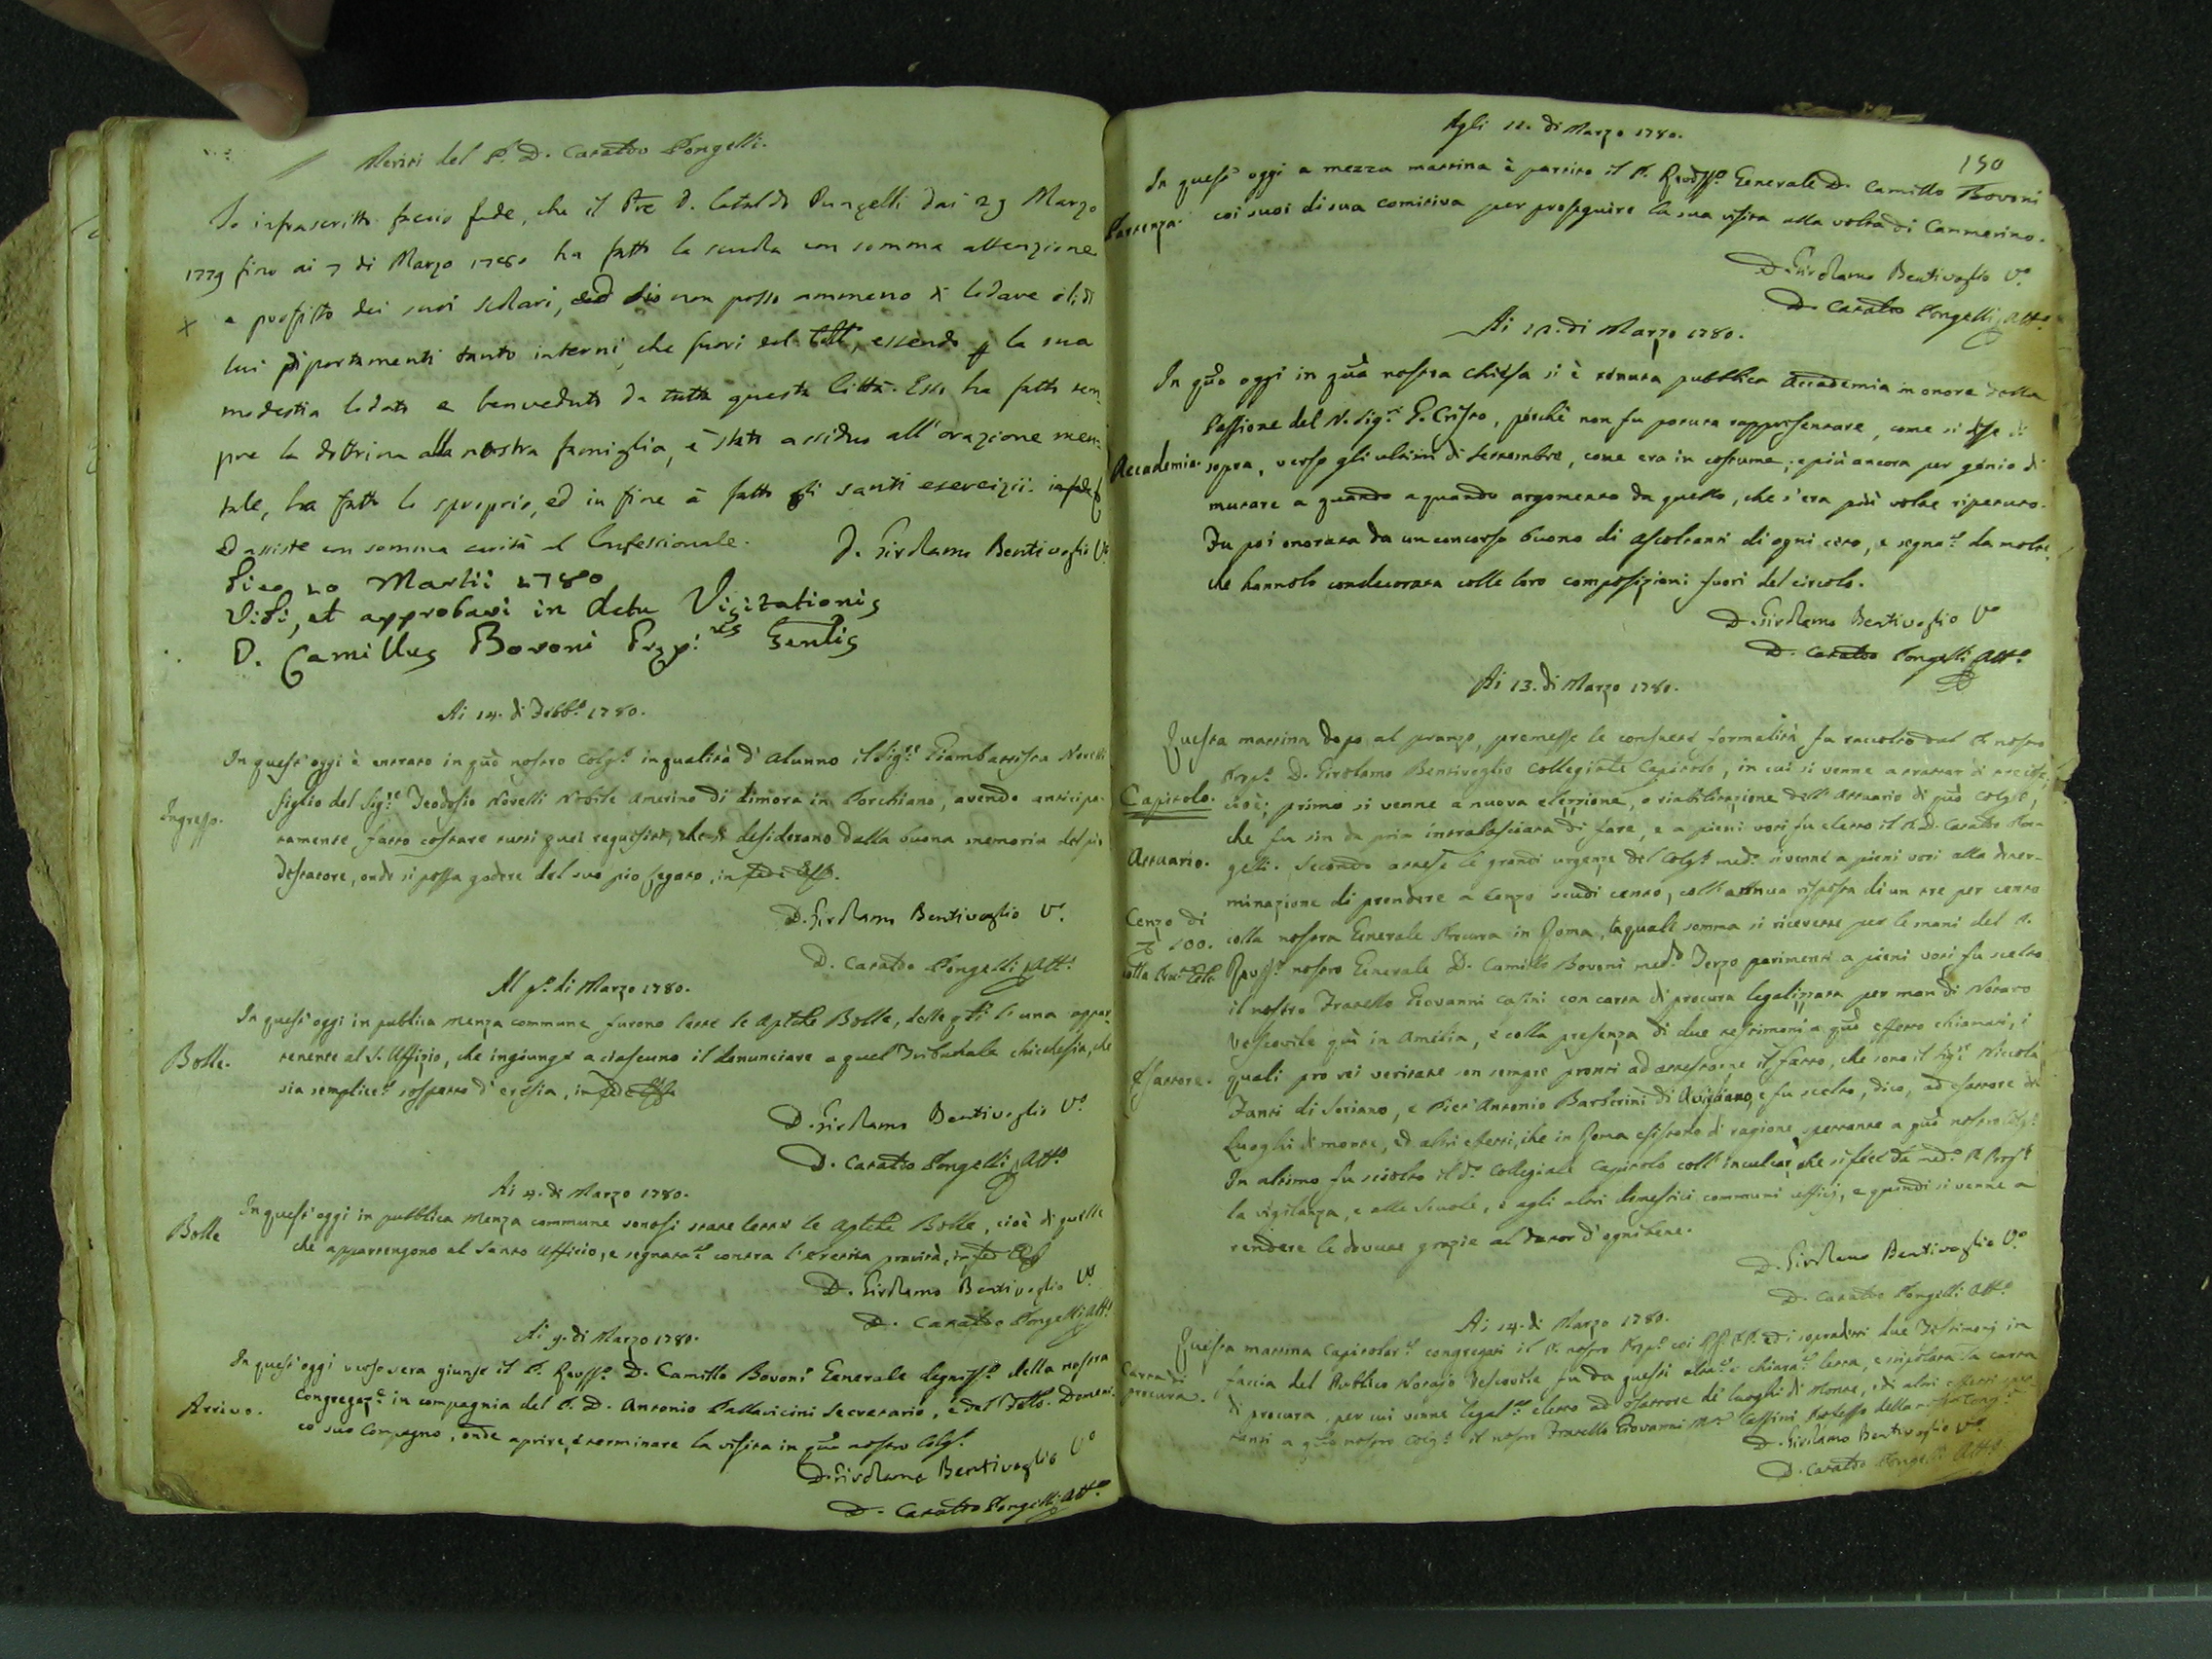 Meriti del P. D. Cataldo Pongelli.
Io infrascritto faccio fede, che il Pre D. Cataldo Pungelli dai 29 Marzo
1779 fino ai 7 di Marzo 1780 ha fatto la scuola con somma attenzione
e profitto dei suoi scolari, non posso ammeno di lodare di
lui diportamenti tanto interni, che fuori del essendo la sua
modestia lodata e benveduto da tutta questa Città. Esso ha fatto sem
pre la dottrina alla nostra famiglia, è stato assiduo all'orazione men-
tale, ha fatto lo sproprio, ed in fine à fatto gli santi esercizii.
ed assiste con somma carità al Confessionale. D. Girolamo Bentivoglio Vo
Die 10 Martii 1780
Vidi, et approbavi in actu Visitationis
D. Camillus Bovoni Præp.tus Gen̄lis
Ai 14. di Febb.o 1780.
In quest'oggi è entrato in quo nostro Colg.o in qualità d'Alunno il Sig.re Giambattista Novelli
Ingresso. figlio del Sig.re Teodosio Novelli Nobile Amerino di dimora in Porchiano, avendo anticipa-
tamente fatto costare tutti quei requisiti, che si desiderano dalla buona memoria del pio
Testatore, onde si possa godere del suo pio Legato, in fede
D. Girolamo Bentivoglio V.o
D. Cataldo Pongelli Att.o
Al p.o di Marzo 1780.
In quest'oggi in publica Menza commune furono lette le Aplche Bolle, delle qli l'una appar-
Bolle. tenente al S. Uffizio, che ingiunge a ciascuno il denunciare a quel Tribunale chicchesia, che
sia semplice.te sospetto d'eresia, in fede
D. Girolamo Bentivoglio V.o
D. Cataldo Pongelli Att.o
Ai 4. di Marzo 1780.
In quest'oggi in pubblica Menza commune sonosi state lette le Aplche Bolle, cioè di quelle
Bolle che appartengono al Santo Officio, e segnata.te contra l'eretica pravità, in fede
D. Girolamo Bentivoglio V.o
D. Cataldo Pongelli Att.o
Ai 9. di Marzo 1780.
In quest'oggi verso sera giunse il P. Rev̄ss.o D. Camillo Bovoni Generale degniss.o della nostra
Arrivo. Congregaz.e in compagnia del P. D. Antonio Pallavicini Secretario, e del Domeni-
co suo Compagno, onde aprire, e terminare la visita in quo nostro Colg.o
D. Girolamo Bentivoglio V.o
D. Cataldo Pongelli Att.o
150
Agli 11. di Marzo 1780.
In quest'oggi a mezza mattina è partito il P. Rev̄ss.o Generale D. Camillo Bovoni
Partenza. coi suoi di sua comitiva per proseguire la sua visita alla volta di Cammerino.
D. Girolamo Bentivoglio V.o
D. Cataldo Pongelli Att.o
Ai 12. di Marzo 1780.
In quo oggi in qua nostra Chiesa si è tenuta pubblica Accademia in onore della
Passione del N. Sig.e G. Cristo, perchè non fu potuta rappresentare, come si disse di
Accademia. sopra, verso gli ultimi di Settembre, come era in costume; e più ancora per genio di
mutare a quando a quando argomento da quello, che s'era più volte ripetuto.
Fu poi onorata da un concorso buono di Ascoltanti di ogni ceto, e segna.te da molti,
che hannolo condecorata colle loro composizioni fuori del circolo.
D. Girolamo Bentivoglio V.o
D. Cataldo Pongelli Att.o
Ai 13. di Marzo 1780.
Questa mattina dopo al pranzo, premesse le consuete formalità fu raccolto dal P. nostro
Prep.o D. Girolamo Bentivoglio Collegiale Capitolo, in cui si venne a trattar di tre cose,
Capitolo. cioè; primo si venne a nuova elezzione, o riabilitazione dell'Attuario di quo Colg.o,
che fu sin da pria intralasciata di fare, e a pieni voti fu eletto il P. D. Cataldo Pon-
Attuario. gelli. Secondo attese le grandi urgenze del Colg.o med.o si venne a pieni voti alla deter-
minazione di prendere a Cenzo scudi cento, coll'annua risposta di un tre per cento
Cenzo di 100. colla nostra Generale Procura in Roma, la quale somma si ricevette per le mani del P.
Rev̄ss.o nostro Generale D. Camillo Bovoni med.o Terzo parimenti a pieni voti fu scelto
il nostro Fratello Giovanni Casini con carta di procura legalizzata per man di Notaro
Vescovile quì in Amelia, e colla presenza di due testimoni a quo effetto chiamati, i
Esattore. quali pro rei veritate son sempre pronti ad attestarne il fatto, che sono il Sig.e Niccola
Fanti di Soriano, e Pier'Antonio Barberini di Avigliano, e fu scelto, dico, ad esattore dei
Luoghi di monte, ed altri effetti, che in Roma esistono di ragione spettante a quo nostro Colg.o
In ultimo fu sciolto il d.o Collegiale Capitolo coll' che si fece da med.o P. Prep.o
la vigilanza, e alle Scuole, e agli altri domestici communi ufficj, e quindi si venne a
rendere le dovute grazie al Dator d'ogni bene.
D. Girolamo Bentivoglio V.o
D. Cataldo Pongelli Att.o
Ai 14. di Marzo 1780.
Questa mattina Capitolar.te congregati il P. nostro Prep.o coi PP. ed i sopradetti due Testimonj in
Carta di procura. faccia del Publico Notajo Vescovile fu da questi e chiara.te letta, e stipolata la carta
di procura, per cui venne legal.te eletto ad esattore de' luoghi di Monte, e di altri effetti spet-
tanti a quo nostro Colg.o il nostro Fratello Giovanni M.a Cassini Professo della Cong.e
D. Girolamo Bentivoglio V.o
D. Cataldo Pongelli Att.o